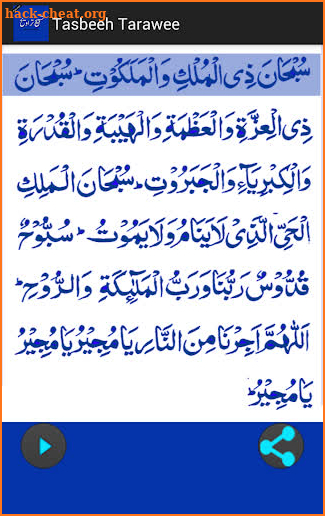 hack-cheat.org
Tasbeeh Tarawee
سُبْحَانَ ذِی الْمُلْكِ وَالْمَلَكُوْتِ ۔ سُبْحَانَ
ذِی الْعِزَّةِ وَالْعَظَمَةِ وَالْهَيْبَةِ وَالْقُدْرَةِ
وَالْكِبْرِيَآءِ وَالْجَبَرُوْتِ ۔ سُبْحَانَ الْمَلِكِ
الْحَیِّ الَّذِیْ لَا يَنَامُ وَلَا يَمُوْتُ ۔ سُبُّوْحٌ
قُدُّوْسٌ رَبُّنَا وَرَبُّ الْمَلٰٓئِكَةِ وَالرُّوْحِ ۔
اَللّٰهُمَّ اَجِرْنَا مِنَ النَّارِ يَا مُجِيْرُ يَا مُجِيْرُ
يَا مُجِيْرُ ۔